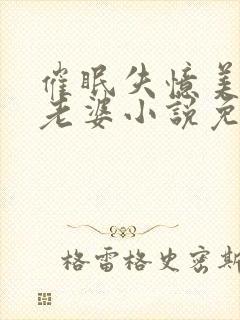 催眠失憶美
老婆小說免
格雷格史密斯